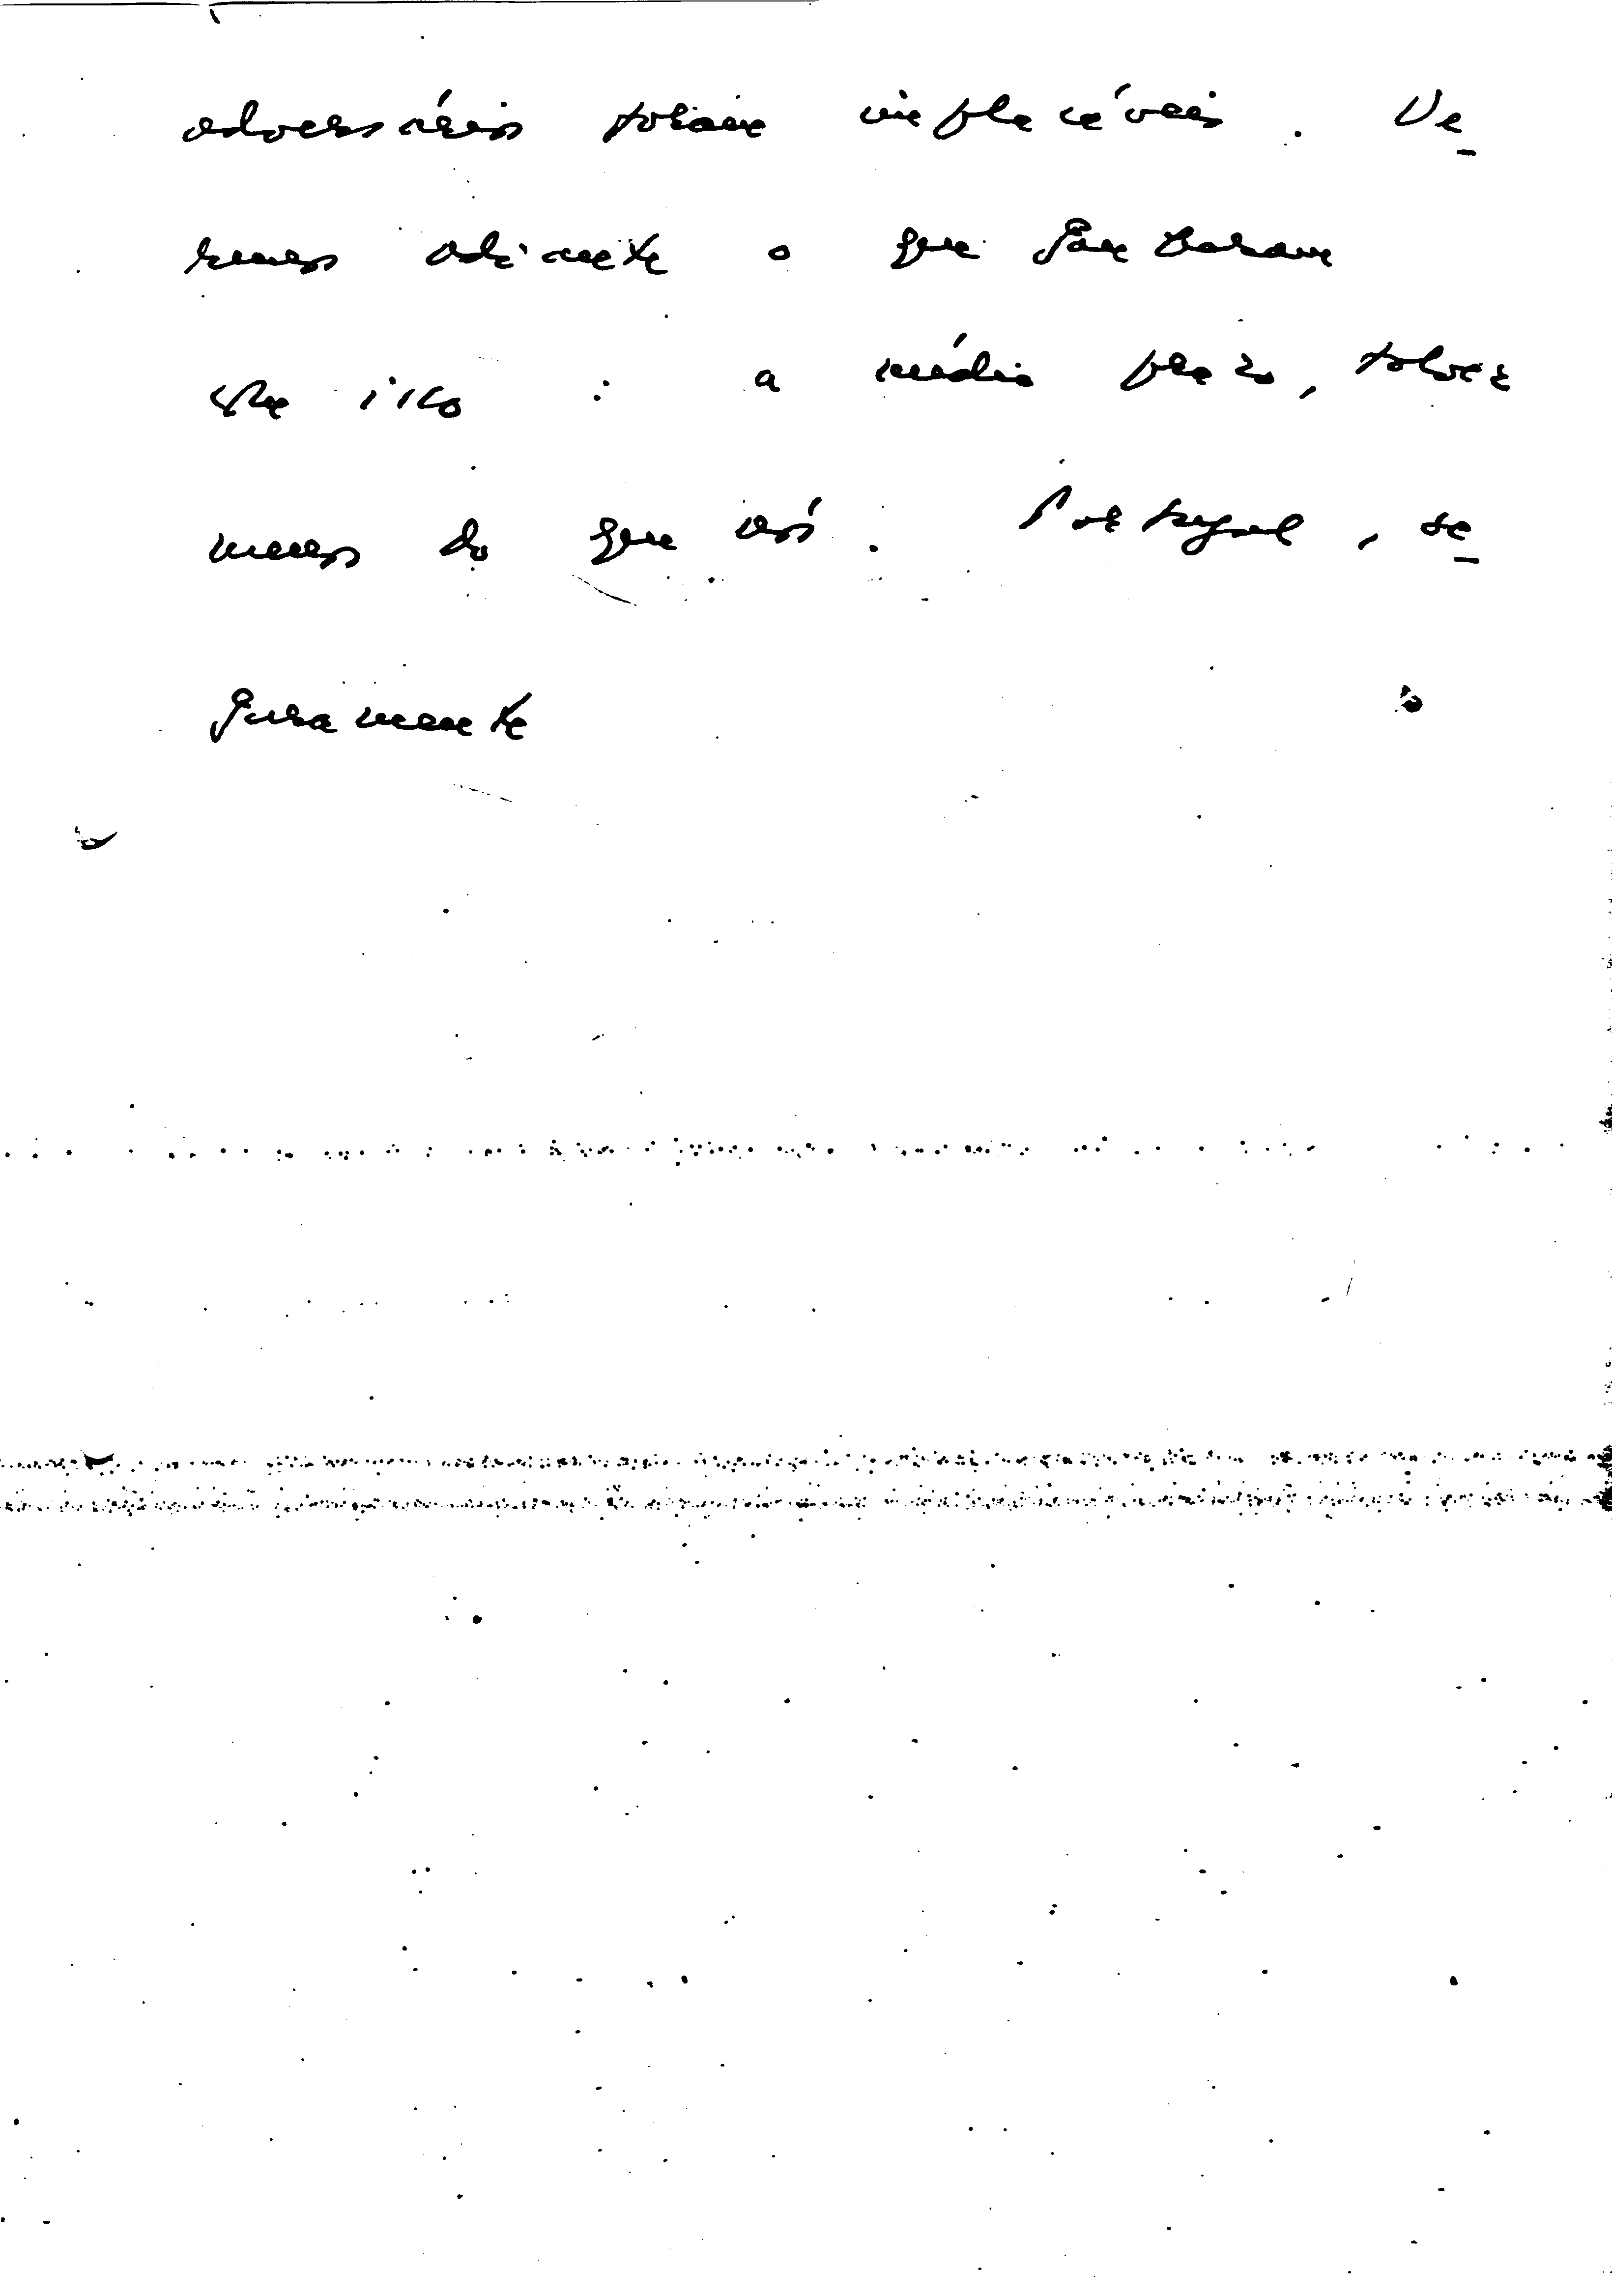 adversários seriam implacáveis. Ve-
remos adiante o que ganharam
com isso: a médio prazo, talvez
menos do que nós. Portugal, se-
guramente